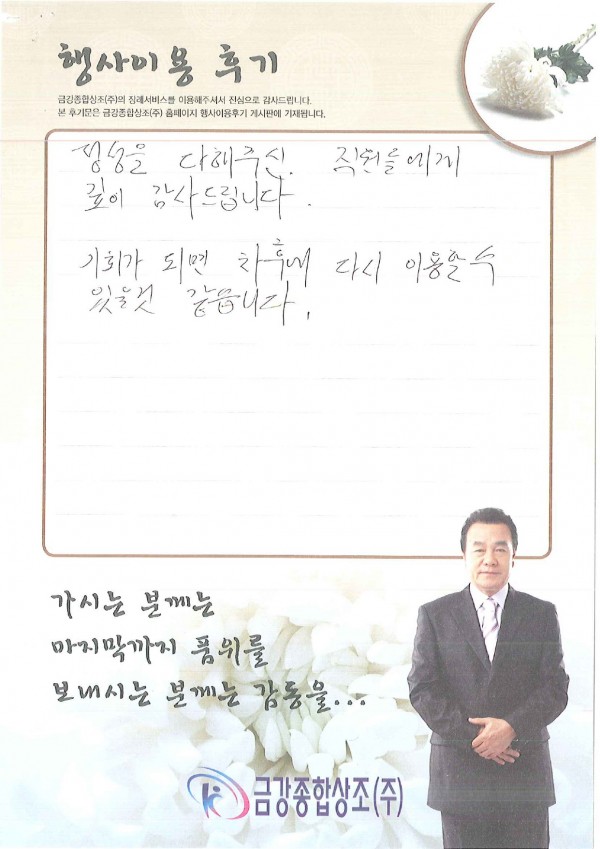 행사이용 후기
금강종합상조(주)의 장례서비스를 이용해주셔서 진심으로 감사드립니다.
본 후기문은 금강종합상조(주) 홈페이지 행사이용후기 게시판에 기재됩니다.
정성을 다해주신. 직원들에게
깊이 감사드립니다.
기회가 되면 차후에 다시 이용할수
있을것 같읍니다.
가시는 분께는
마지막까지 품위를
보내시는 분께는 감동을...
금강종합상조(주)